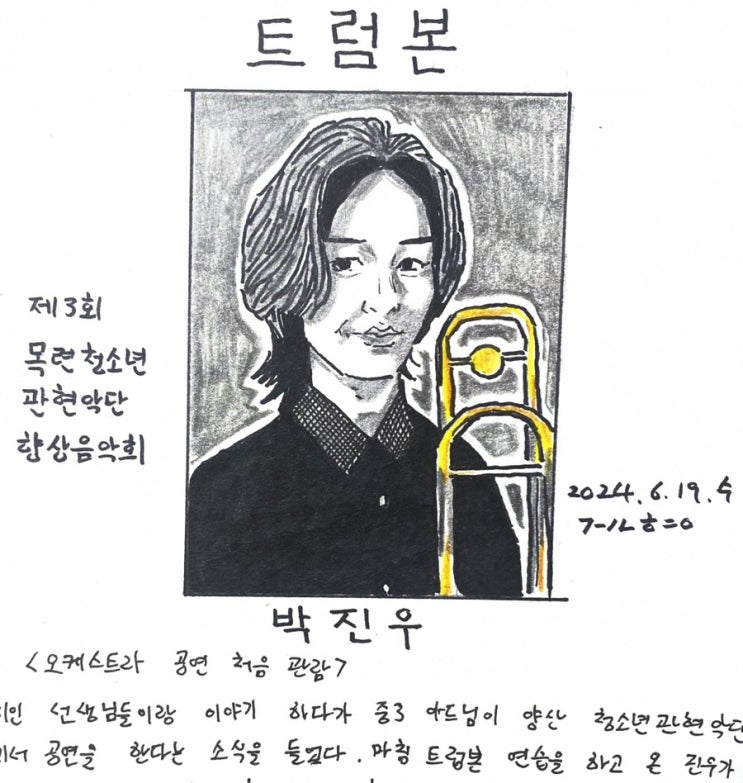 트럼본
제3회
목련청소년
관현악단
향상음악회
2024. 6. 19. 수
박진우
<오케스트라 공연 처음 관람>
선생님들이랑 이야기 하다가 중3 아드님이 양산 청소년관현악단
공연을 한다는 소식을 들었다. 마침 트럼본 연습을 하고 온 진우가